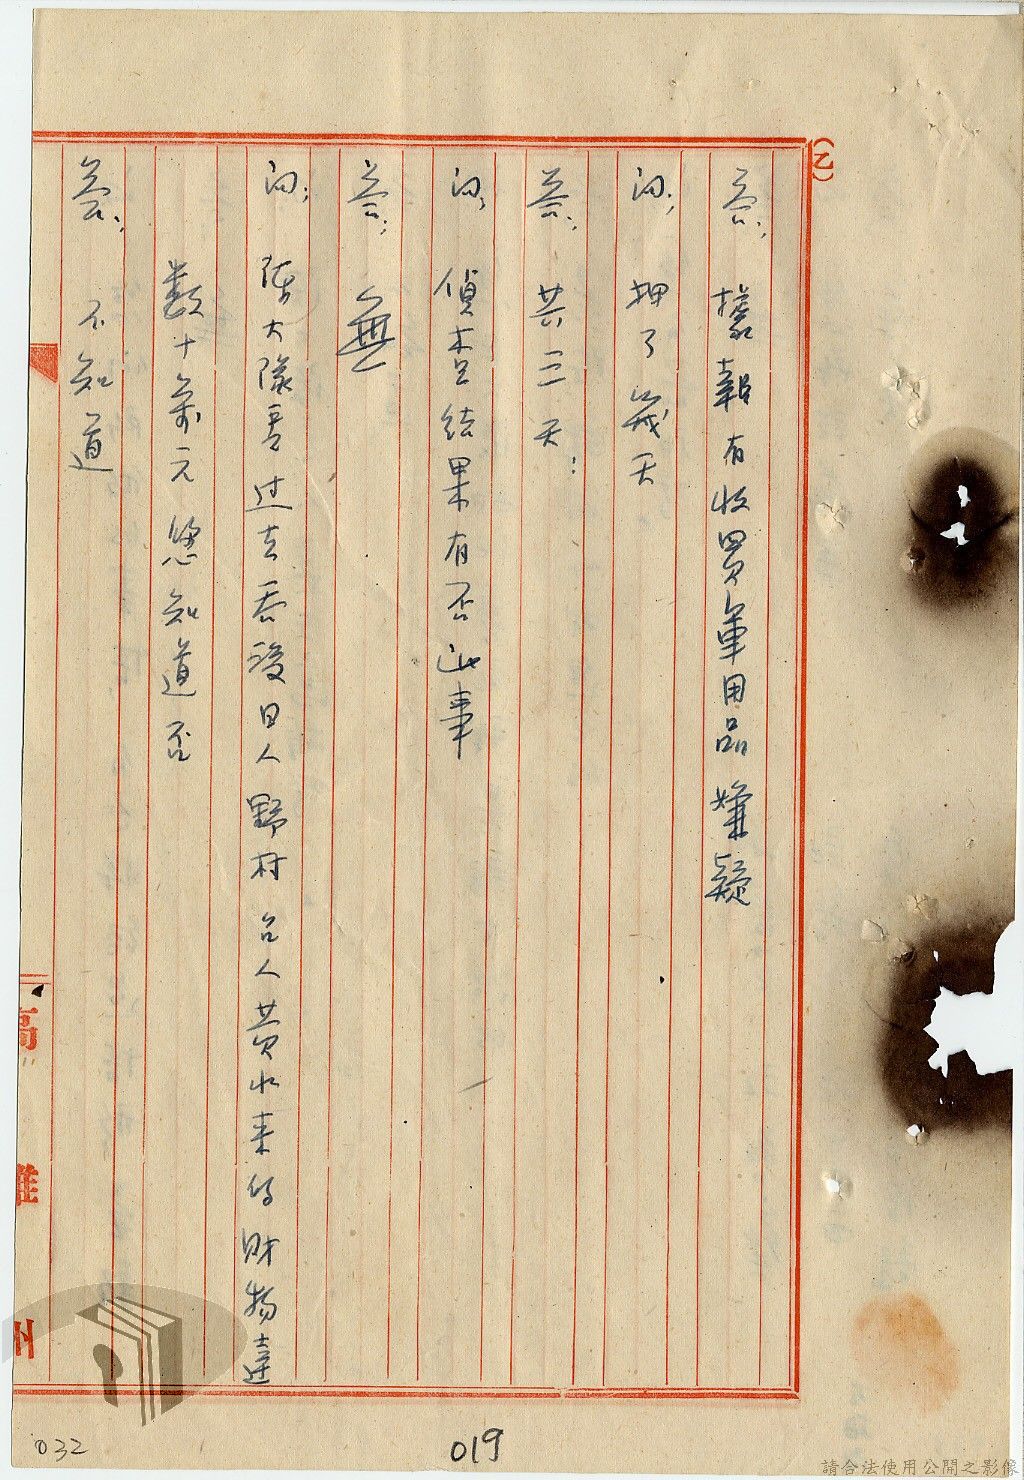 (乙)
答；據報有收買軍用品嫌疑
问；押了幾天
答；共三天：
问；偵查結果有否此事
答；無
问；陳大隊長过去吞沒日人野村 台人黄水来的財物達
数十萬元您知道否
答；不知道
高
雄
州
032
019
請合法使用公開之影像